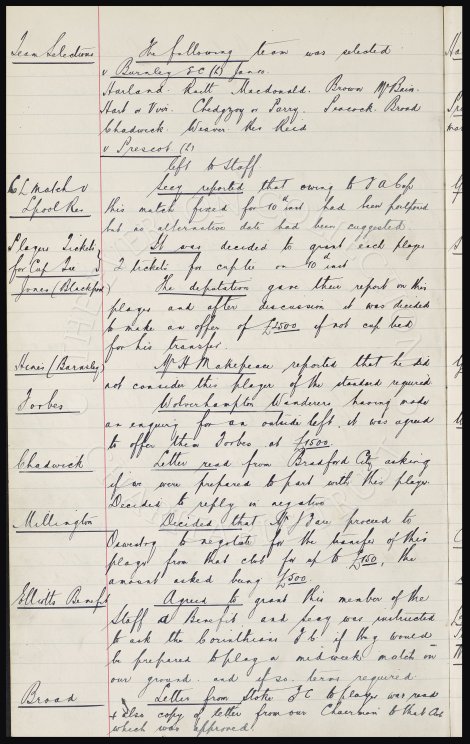 Team Selections The following team was selected
v Burnley E C (L) James.
Harland. Raitt Macdonald. Brown McBain.
Hart or Virr. Chedgzoy or Parry. Peacock. Broad
Chadwick. Weaver. Res Reid
v Prescot (L)
left to Staff
C L Match v Secy reported that owing to F A Cup
L'pool Res this match fixed for 10th inst had been postponed
but no alternative date had been suggested.
Players Tickets It was decided to grant each player
for Cup Tie 2 tickets for cup tie on 10th inst
Jones (Blackpool) The deputation gave their report on this
player and after discussion it was decided
to make an offer of £2500 if not cup tied
for his transfer.
Hines (Barnsley) Mr H Makepeace reported that he did
not consider this player of the standard required
Forbes Wolverhampton Wanderers having made
an enquiry for an outside left, it was agreed
to offer them Forbes at £1500.
Chadwick Letter read from Bradford City asking
if we were prepared to part with this player
Decided to reply in negative
Millington Decided that Mr Fare proceed to
Oswestry to negotiate for the transfer of this
player from that club for up to £150, the
amount asked being £500.
Elliotts Benefit Agreed to grant this member of the
Staff a Benefit and Secy was instructed
to ask the Corinthians F C if they would
be prepared to play a midweek match on
our ground. and if so. terms required.
Broad Letter from Stoke F C to player was read
+ Also copy of letter from our Chairman to that Club
which was approved.